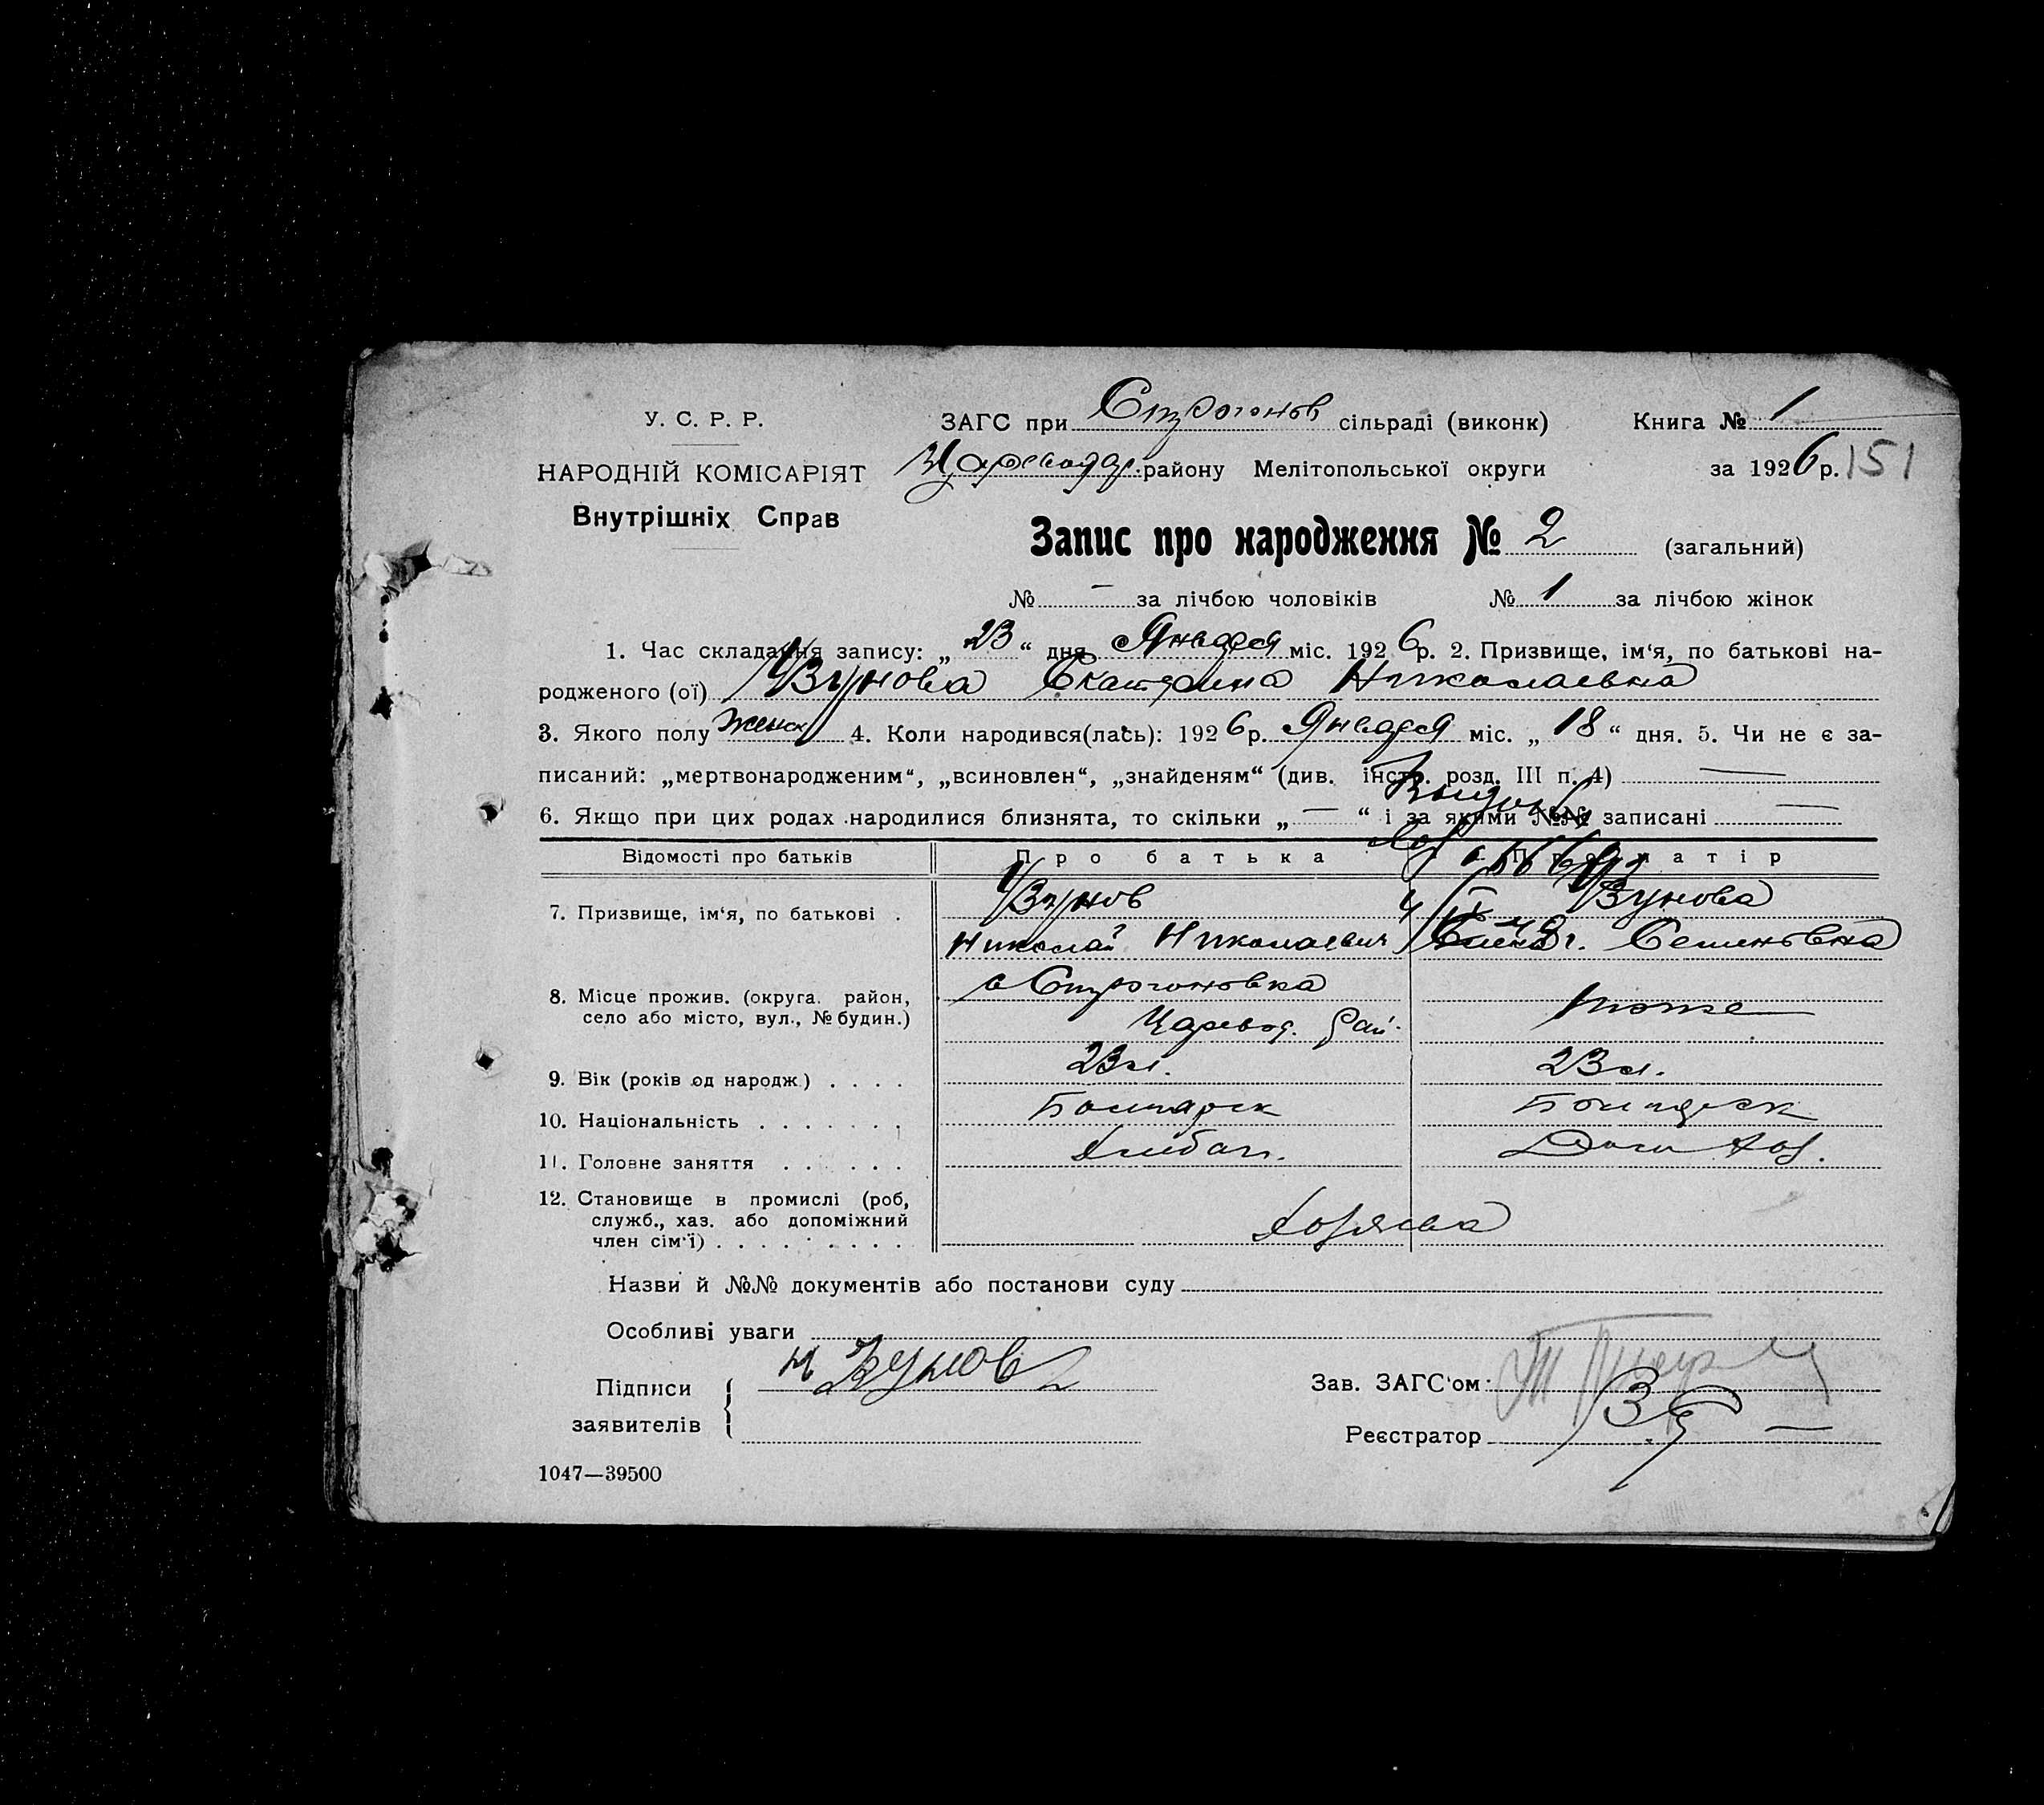 У. С. Р. Р.
НАРОДНІЙ КОМІСАРІЯТ
Внутрішніх Справ
ЗАГС при Строгонов сільраді (виконк) Книга № 1
Цареводар. району Мелітопольської округи за 1926 р. 151
Запис про народження № 2 (загальний)
№ — за лічбою чоловіків № 1 за лічбою жінок
1. Час складання запису: „23“ дня Января міс. 1926 р. 2. Призвище, ім‘я, по батькові на-
родженого (ої) Узунова Екатерина Николаевна
3. Якого полу женск 4. Коли народився(лась): 1926 р. Января міс. „18“ дня. 5. Чи не є за-
писаний: „мертвонародженим“, „всиновлен“, „знайденям“ (див. інстр. розд. III п. 4) —
6. Якщо при цих родах народилися близнята, то скільки „—“ і за якими №№ записані —
Відомості про батьків Про батька Про матір
7. Призвище, ім‘я, по батькові . Узунов Узунова
Николай Николаевич Семеновна
8. Місце прожив. (округа, район, с Строгоновка тоже
село або місто, вул., № будин.) Царевод. Рай.
9. Вік (років од народж.) . . . . 23 л. 23 л.
10. Національність . . . . . . . Болгарск Болгарск
11. Головне заняття . . . . . . Хлебоп. Дом Хоз.
12. Становище в промислі (роб,
служб., хаз. або допоміжний
член сім‘ї) . . . . . . . . . Хозяева
Назви й №№ документів або постанови суду
Особливі уваги
Підписи
заявителів Н Узунов
Зав. ЗАГС‘ом
Реєстратор
1047—39500